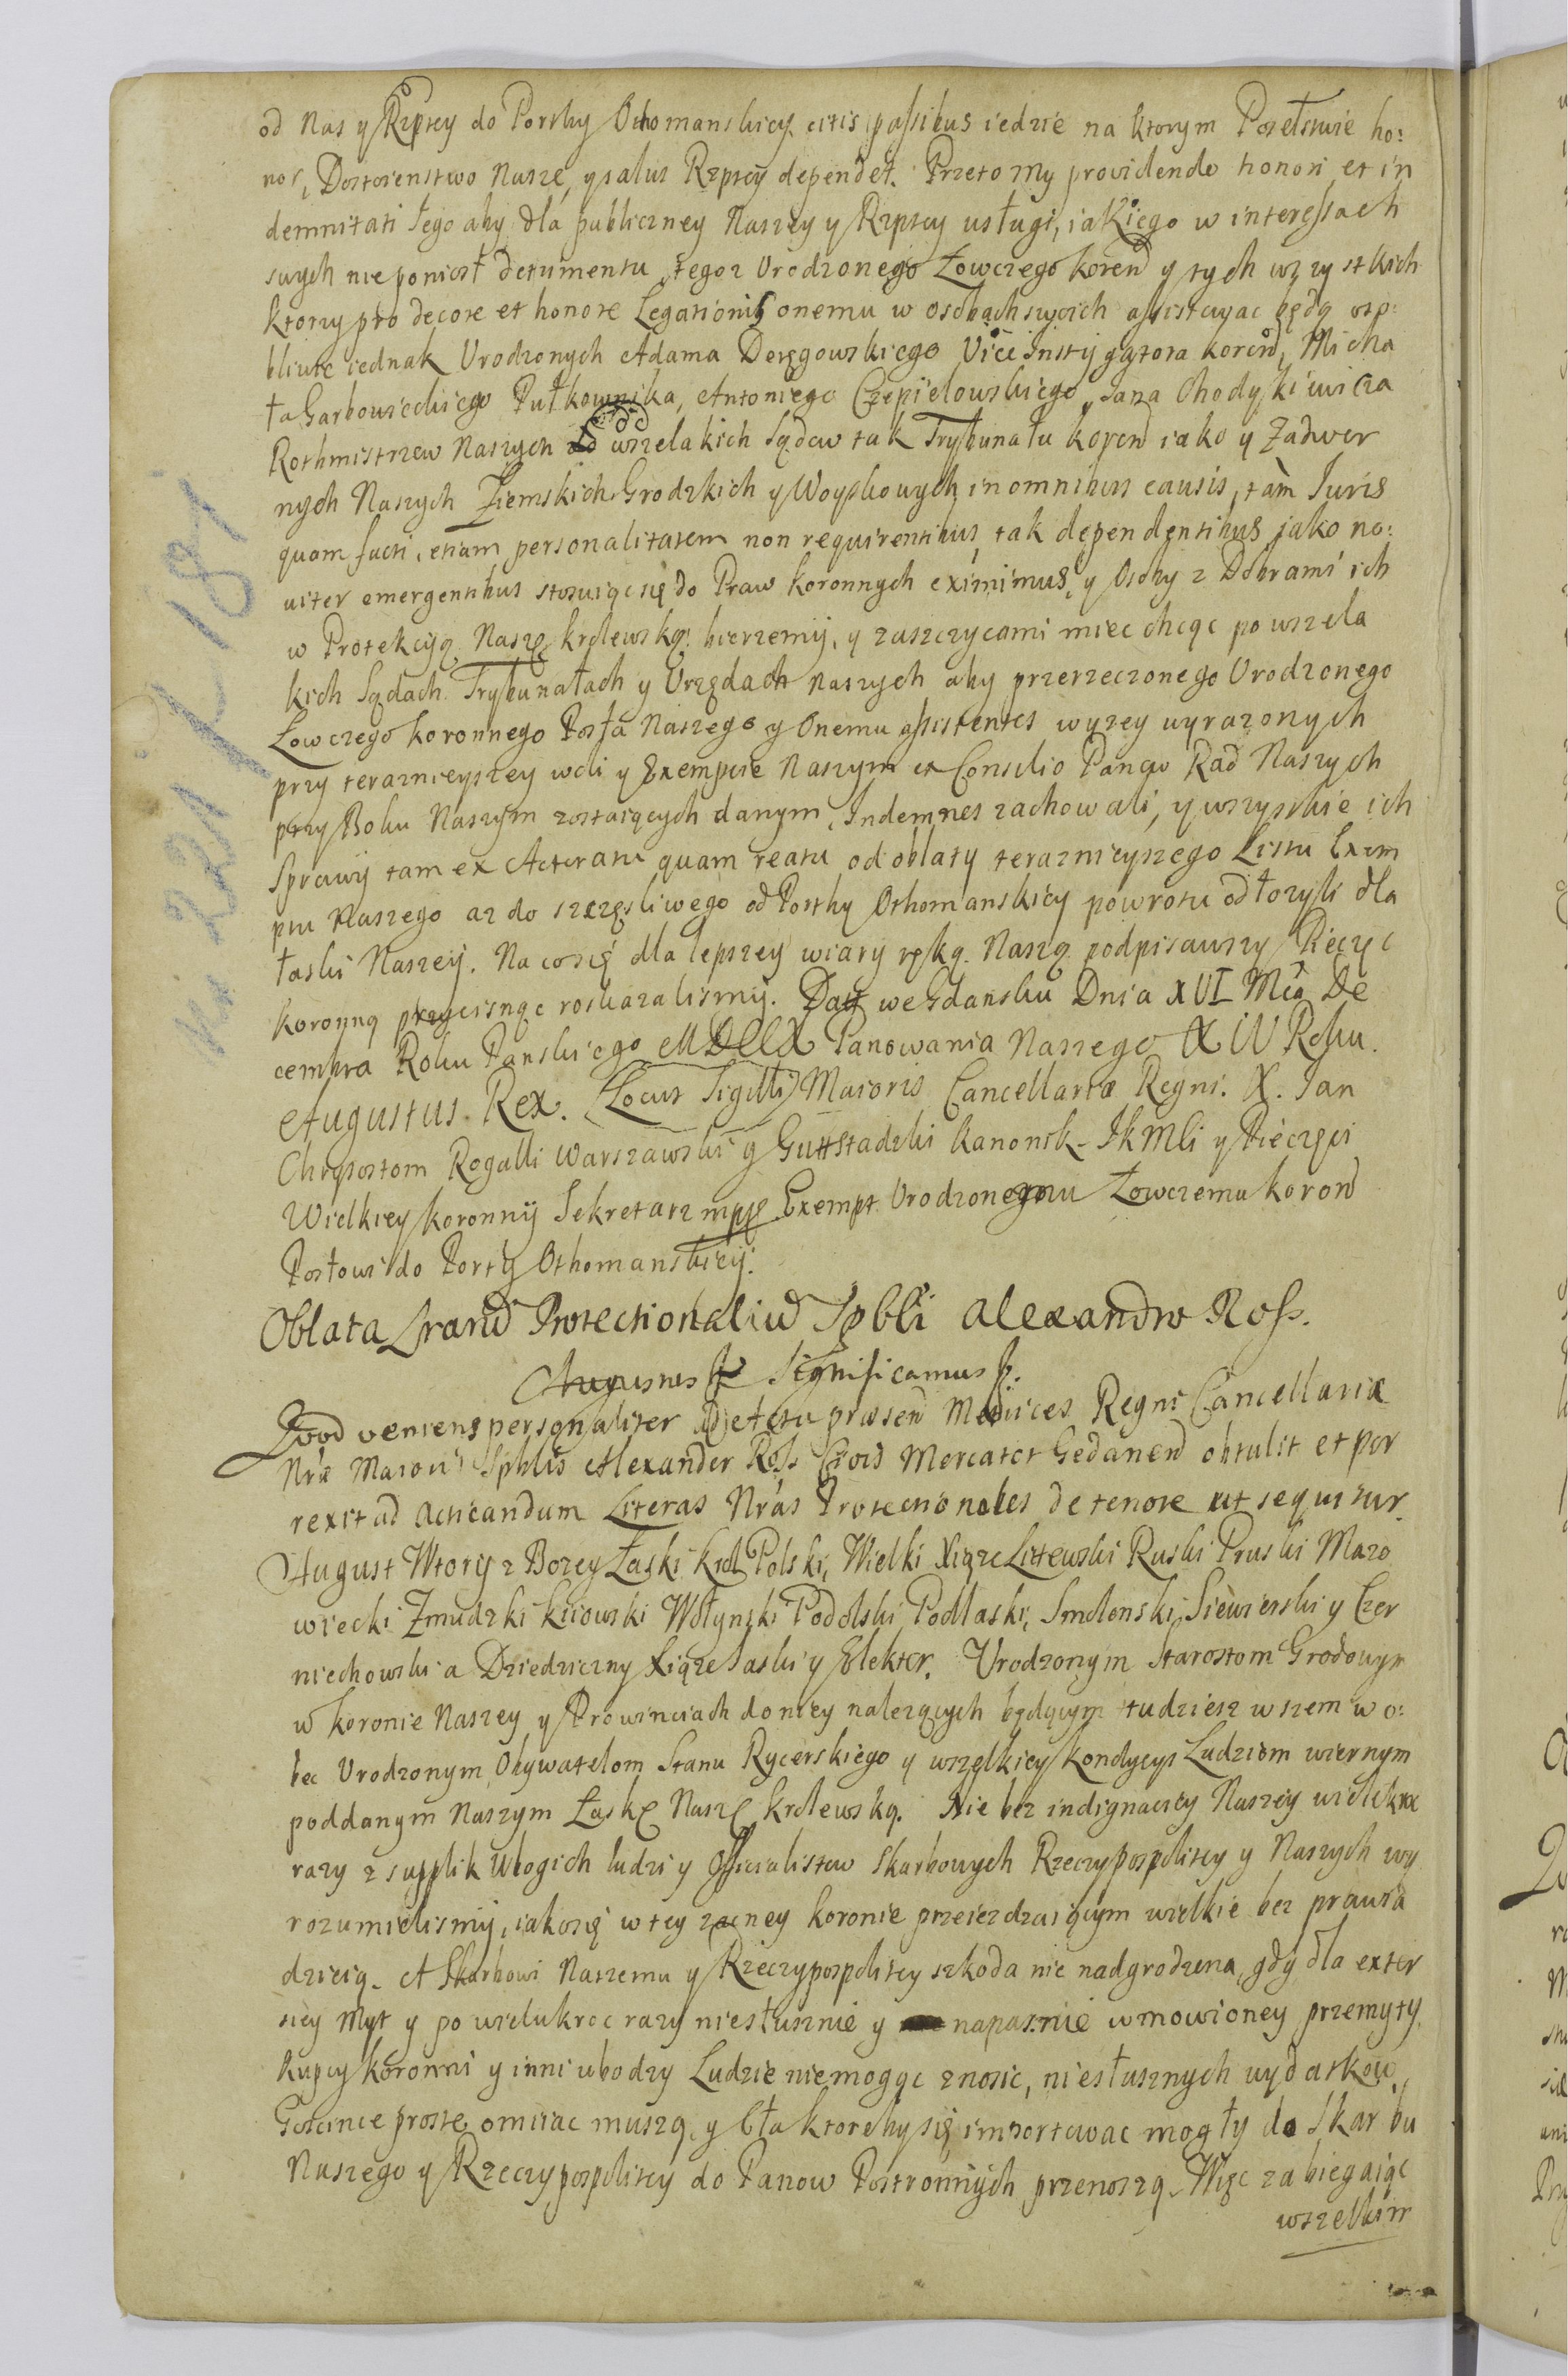 od Nas y Rzptey do Porthy Othomanskiey citis passibus iedzie na ktorym Poselstwie ho:
nor, Dostoienstwo Nasze, y salus Rzptey dependet. Przeto My providendo honori et in
demnitati Iego aby dla publiczney Naszey y Rzptey usługi, iakiego w interessach
swych nie poniosł detrimentu, tegoz Urodzonego Łowczego koron y tych wszystkich
ktorzy pro decore et honore Legationis onemu w osobach swoich assistować będą oso:
bliwie iednak Urodzonych Adama Deręgowskiego Vice Instygatora koron, Micha
ła Garbowieckiego Pułkownika, Antoniego Czepielowskiego, Iana Chodykiewicza
Rothmistrzow Naszych od wszelakich Sądow tak Trybunału koron iako y Zadwor
nych Naszych Ziemskich Grodzkich y Woyskowych in omnibus causis, tàm Iuris
quam facti, etiam personalitatem non requirentibus, tak dependentibus jako no:
uiter emergentibus stosuiąc się do Praw koronnych eximimus, y Osoby z Dobrami ich
w Protekcyą Naszę krolewską bierzemy, y zaszczycami miec chcąc po wszela
kich Sądach Trybunałach y Urzędach naszych aby przerzeczonego Urodzonego
Łowczego koronnego Posła Naszego y Onemu assistentes wyzey wyrazonych
przy teraznieyszey woli y Exempcie Naszym et Consilio Panow Rad Naszych
przy Boku Naszym zostaiących danym, Indemnes zachowali, y wszyskie ich
Sprawy tam ex Actoratu quam reatu od oblaty teraznieyszego Listu Exem
ptu Naszego az do szczęsliwego od Porthy Othomanskiey powrotu odłozyli dla
łaski Naszey. Na co się dla lepszey wiary ręką Naszą podpisawszy Pieczęc
koronną przycisnąc roskazalismy. Dat we Gdansku Dnia XVI Mca De
cembra Roku Panskiego MDCCX Panowania Naszego XIV Roku.
Augustus Rex. (Locus Sigilli) Maioris Cancellariæ Regni. X. Ian
Chrysostom Rogalli Warszawski y Guttstadzki kanonik JKMCi y Pieczęci
Wielkiey koronny Sekretarz mpp Exempt Urodzonemu Łowczemu koron
Posłowi do Porty Othomanskiey.
Oblata Lrarum Protectionalium Spbli Alexandro Ross.
Augustus &c Significamus &c.
Quod veniens personaliter ad Acta præsen Metrices Regni Cancellariæ
Nræ Maioris Spblis Alexander Ross Civis Mercator Gedanen obtulit et por
rexit ad acticandum Literas Nras Protectionales de tenore ut sequitur.
August Wtory z Bozey Łaski krol Polski, Wielki Xiąze Littewski Ruski Pruski Mazo
wiecki Zmudzki kiiowski Wołynski Podolski Podlaski, Smolenski, Siewierski y Czer
niechowski a Dziedziczny Xiąze Saski y Elektor. Urodzonym Starostom Grodowym
w koronie Naszey y Prowinciach do niey nalezących będącym tudziesz wszem w o:
bec Urodzonym Obywatelom Stanu Rycerskiego y wszelkiey kondycyi Ludziom wiernym
poddanym Naszym Łaskę Naszę krolewską. Nie bez indignacyey Naszey wielekroc
razy z supplik Ubogich ludzi y Officialistow Skarbowych Rzeczypospolitey y Naszych wy
rozumielismy, iako się w tey zacney koronie przeiezdzaiącym wielkie bez prawia
dzieią. A Skarbowi Naszemu y Rzeczypospolitey szkoda nie nadgrodzona, gdy dla extor
siey Myt y po wielukroc razy niesłusznie y napasnie wmowioney przemyty
kupcy koronni y inni ubodzy Ludzie niemogąc znosic, niesłusznych wydatkow
Goscince proste omiiac muszą, y Cła ktoreby się importowac mogły do Skarbu
Naszego y Rzeczypospolitey do Panow Postronnych przenoszą. Więc zabiegaiąc
wszelkim